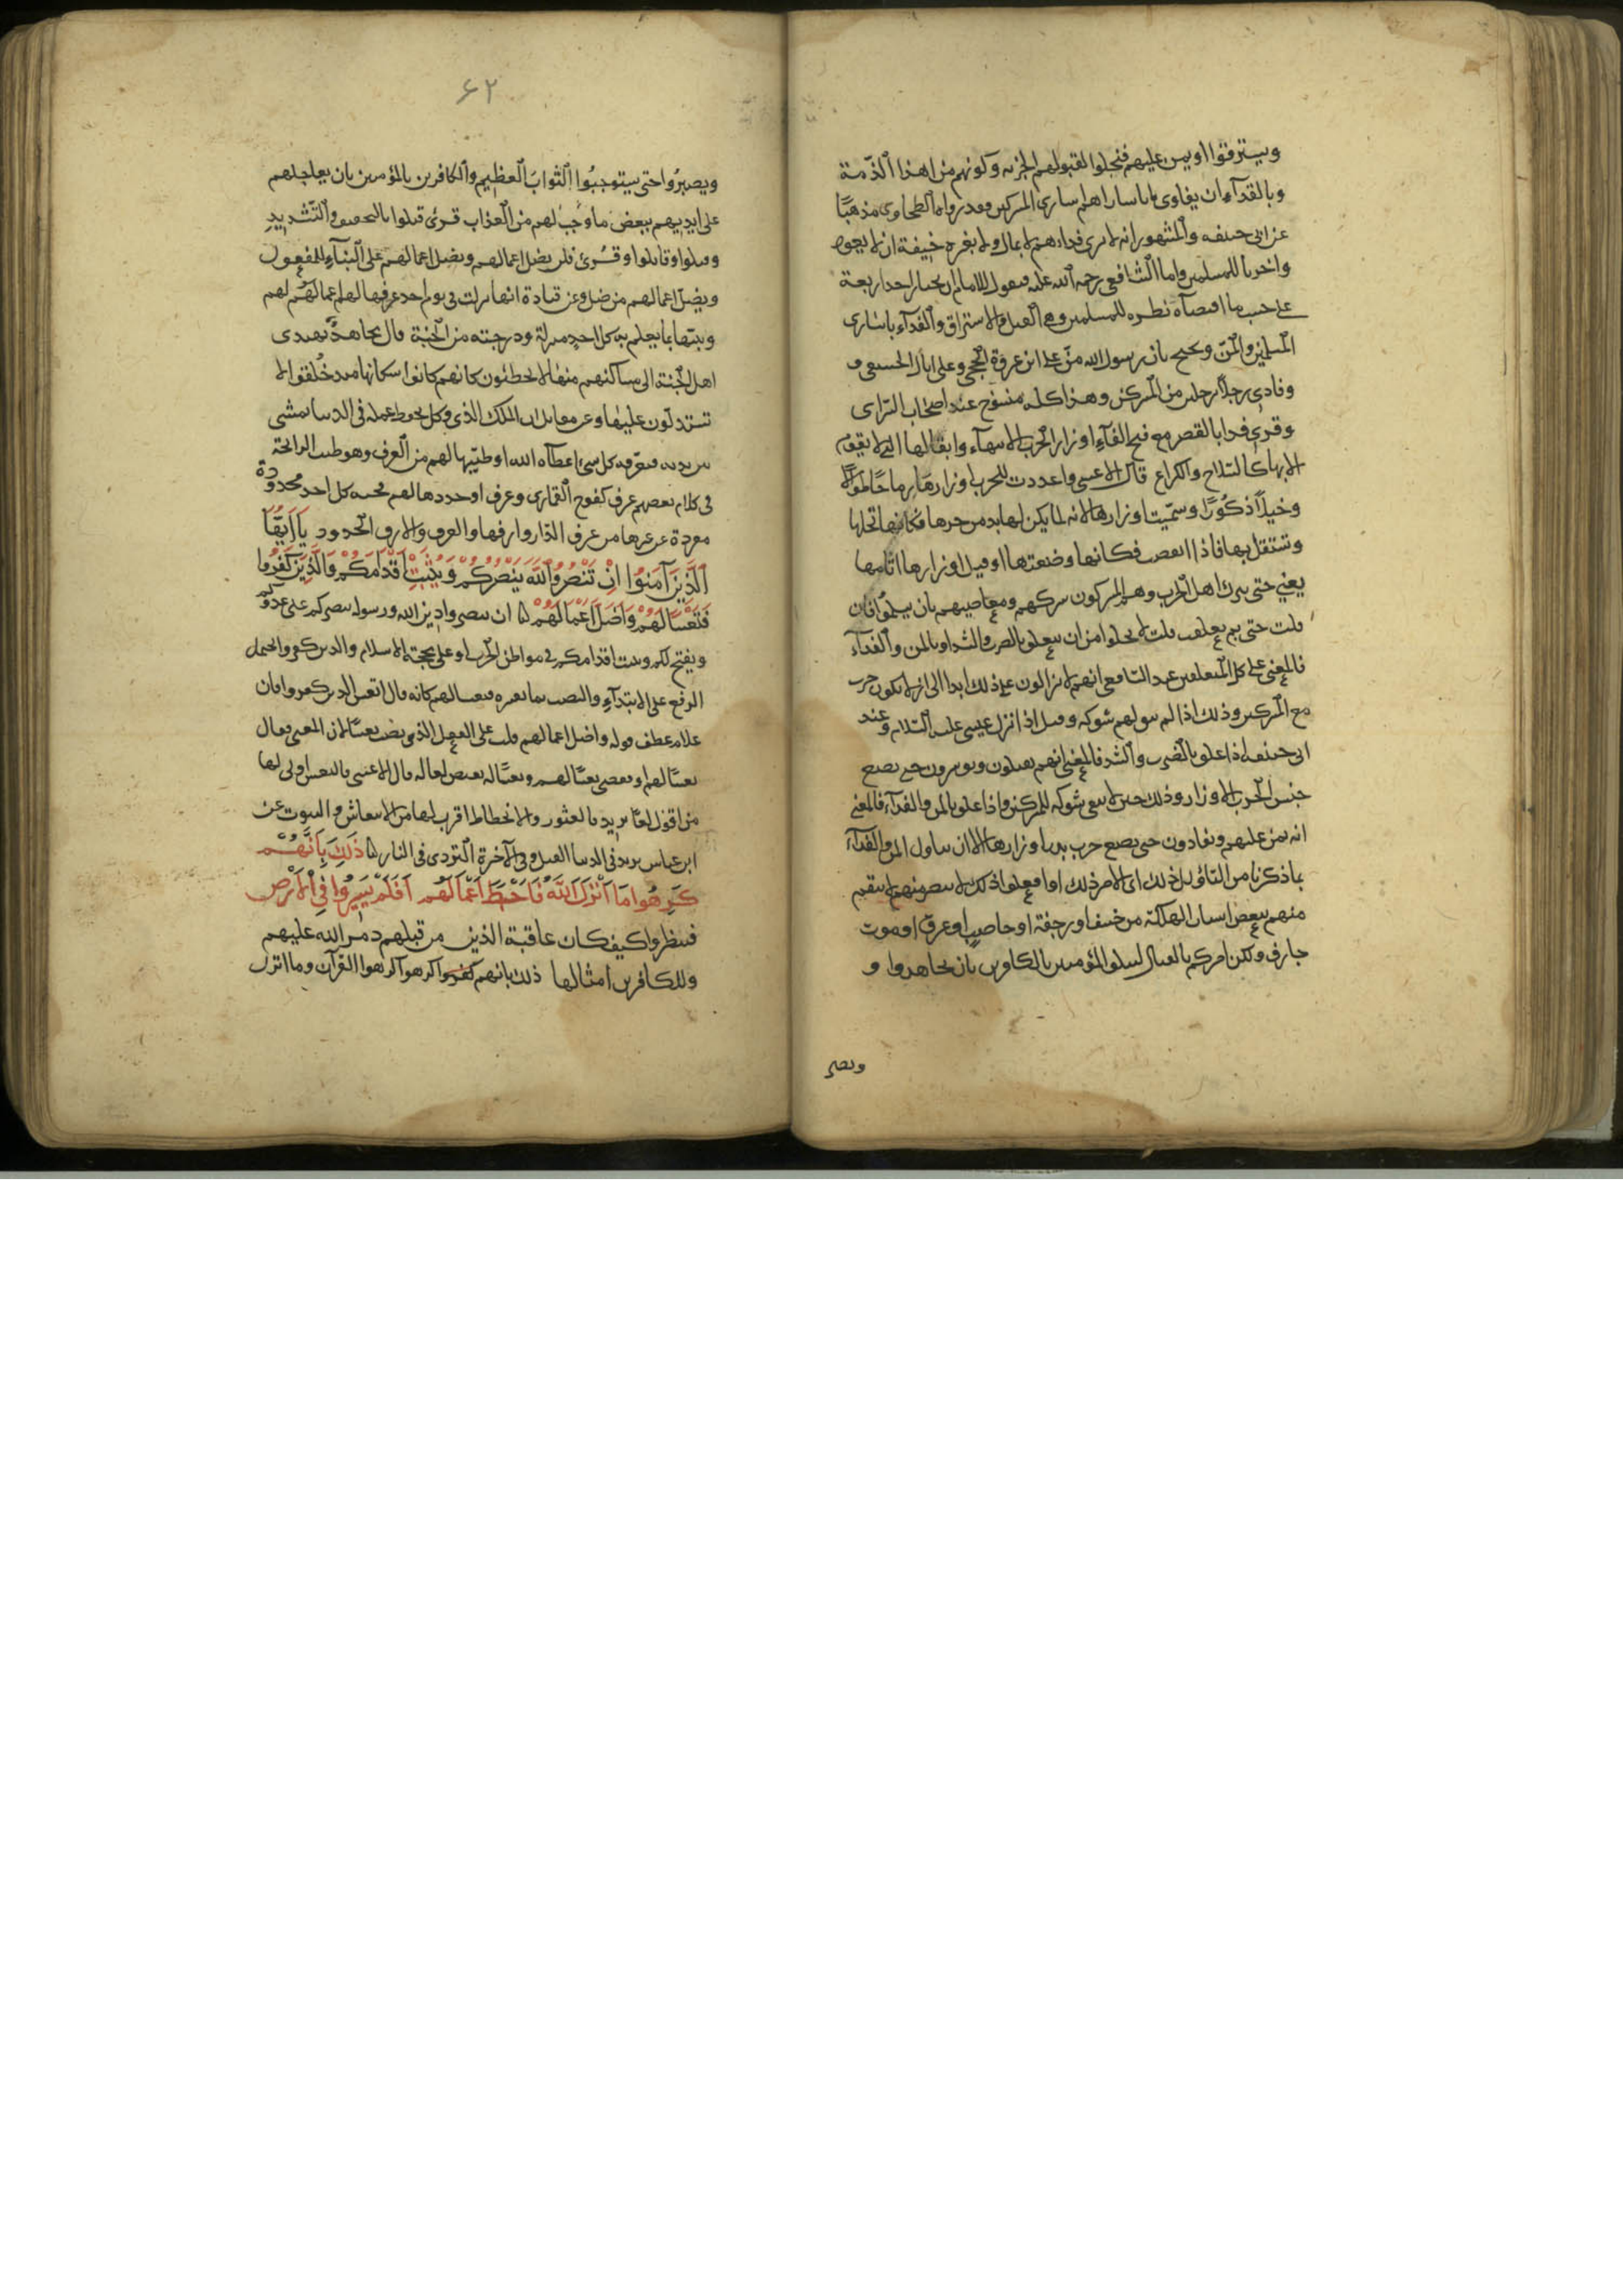 ويسترقوا او يمن عليهم فيخلوا لقبولهم الجزيه وكونهم من اهل الذمة
وبالفدآء ان يفادى باساراهم اسارى المشركين وقد رواه الطحاوى مذهبًا
عن ابى حنيفه والمشهور انه لا يرى فداءهم لا بمال ولا بغيره خيفة ان لا يعودوا
للمسلمين واما الشافعى رحمه الله عليه فيقول للامام ان يختار احد اربعة
على حسب ما اقتضاه نظره للمسلمين وهى القتل والاسترقاق والفدآء باسارى
المسلمين والمنّ ويحتج بان رسول الله منّ على ابى عروة الحجبى وعلى اثال الحنفى و
وفادى رجلا برجلين من المشركين وهذا كله منسوخ عند اصحاب الراى
وقرئ فدا بالقصر مع فتح الفآء اوزار الحرب الاتها واثقالها التى لا تقوم
الا بها كالسلاح والكراع قال الاعشى واعددت للحرب اوزارها رماحًا طوالا
وخيلًا ذكورًا وسميت اوزارها لانه لما يكن لها بد من جرها فكانها تحملها
وتستقل بها فاذا انقضت فكانها وضعتها وقيل اوزارها اثامها
يعنى حتى يترك اهل الحرب وهم المشركون شركهم ومعاصيهم بان يسلموا فان
قلت حتى بم تعلقت قلت لا يخلوا من ان يتعلق بالضرب والشد او بالمن والفدآء
فالمعنى على كلا المتعلقين عند الشافعى انهم لا يزالون على ذلك ابدا الى ان لا يكون حرب
مع المشركين وذلك اذا لم يبق لهم شوكه وقيل اذا نزل عيسى عليه السلام وعند
ابى حنيفه اذا علق بالضرب والشد فالمعنى انهم يقتلون ويوسرون حتى يضع
جنس الحرب الاوزار وذلك حين لا يبقى شوكه للمشركين واذا علق بالمن والفدآء فالمعنى
انه يمن عليهم ويفادون حتى يضع حرب بدر اوزارها الا ان يتاول المن والفدآء
بما ذكرنا من التاويل ذلك اى الامر ذلك او افعلوا ذلك لانتصر منهم لانتقم
منهم ببعض اسباب الهلكة من خسف او رجفة او حاصب او غرق او موت
جارف ولكن امركم بالقتال ليبلو المؤمنين بالكافرين بان يجاهدوا و
ويصبر
۶۲
ويصبروا حتى يستوجبوا الثواب العظيم والكافرين بالمؤمنين بان يعاجلهم
على ايديهم ببعض ما وجب لهم من العذاب قرئ قتلوا بالتخفيف والتشديد
وقتلوا وقاتلوا وقرئ فلن يضل اعمالهم وتضل اعمالهم على البنآء للمفعول
ويضل اعمالهم من ضل وعن قتادة انها نزلت فى يوم احد عرفها لهم اعلمها لهم
وبينها بما يعلم به كل احد منزلة ودرجته من الجنة قال مجاهد يهتدى
اهل الجنة الى مساكنهم منها لا يخطئون كانهم كانوا سكانها منذ خلقوا لا
تستدلون عليها وعن مقاتل ان الملك الذى وكل بحفظ عمله فى الدنيا يمشى
بين يديه فيعرفه كل شئ اعطاه الله او طيبها لهم من العرف وهو طيب الرائحة
فى كلام بعضهم عرف كفوح القمارى وعرف او حددها لهم فجنه كل احد محدودة
مفرزة عن غيرها من عرف الدار وارفها والعرف والارف الحدود يَا اَيُّهَا
الَّذِينَ آمَنُوا اِنْ تَنْصُرُوا اللَّهَ يَنْصُرْكُمْ وَيُثَبِّتْ اَقْدَامَكُمْ وَالَّذِينَ كَفَرُوا
فَتَعْسًا لَهُمْ وَاَضَلَّ اَعْمَالَهُمْ ان تنصروا دين الله ورسوله ينصركم على عدوكم
ويفتح لكم ويثبت اقدامكم فى مواطن الحرب او على محجة الاسلام والذين كفروا يحتمل
الرفع على الابتدآء والنصب بما يفسره فتعسا لهم كانه قال اتعس الذين كفروا فان
علام عطف قوله واضل اعمالهم قلت على الفعل الذى نصب تعسًا لان المعنى فقال
تعسًا لهم او فقضى تعسًا لهم وتعسًا له نقيض لعا له قال الاعشى فالتعس اولى لها
من ان اقول لعا يريد فالعثور والانحطاط اقرب لها من الانتعاش والثبوت عن
ابن عباس يريد فى الدنيا القتل وفى الآخرة التردى فى النار ذَلِكَ بِاَنَّهُمْ
كَرِهُوا مَا اَنْزَلَ اللَّهُ فَاَحْبَطَ اَعْمَالَهُمْ اَفَلَمْ يَسِيرُوا فِى الْاَرْضِ
فينظروا كيف كان عاقبة الذين من قبلهم دمر الله عليهم
وللكافرين امثالها ذلك بانهم كفروا كرهوا كرهوا القرآن وما انزل